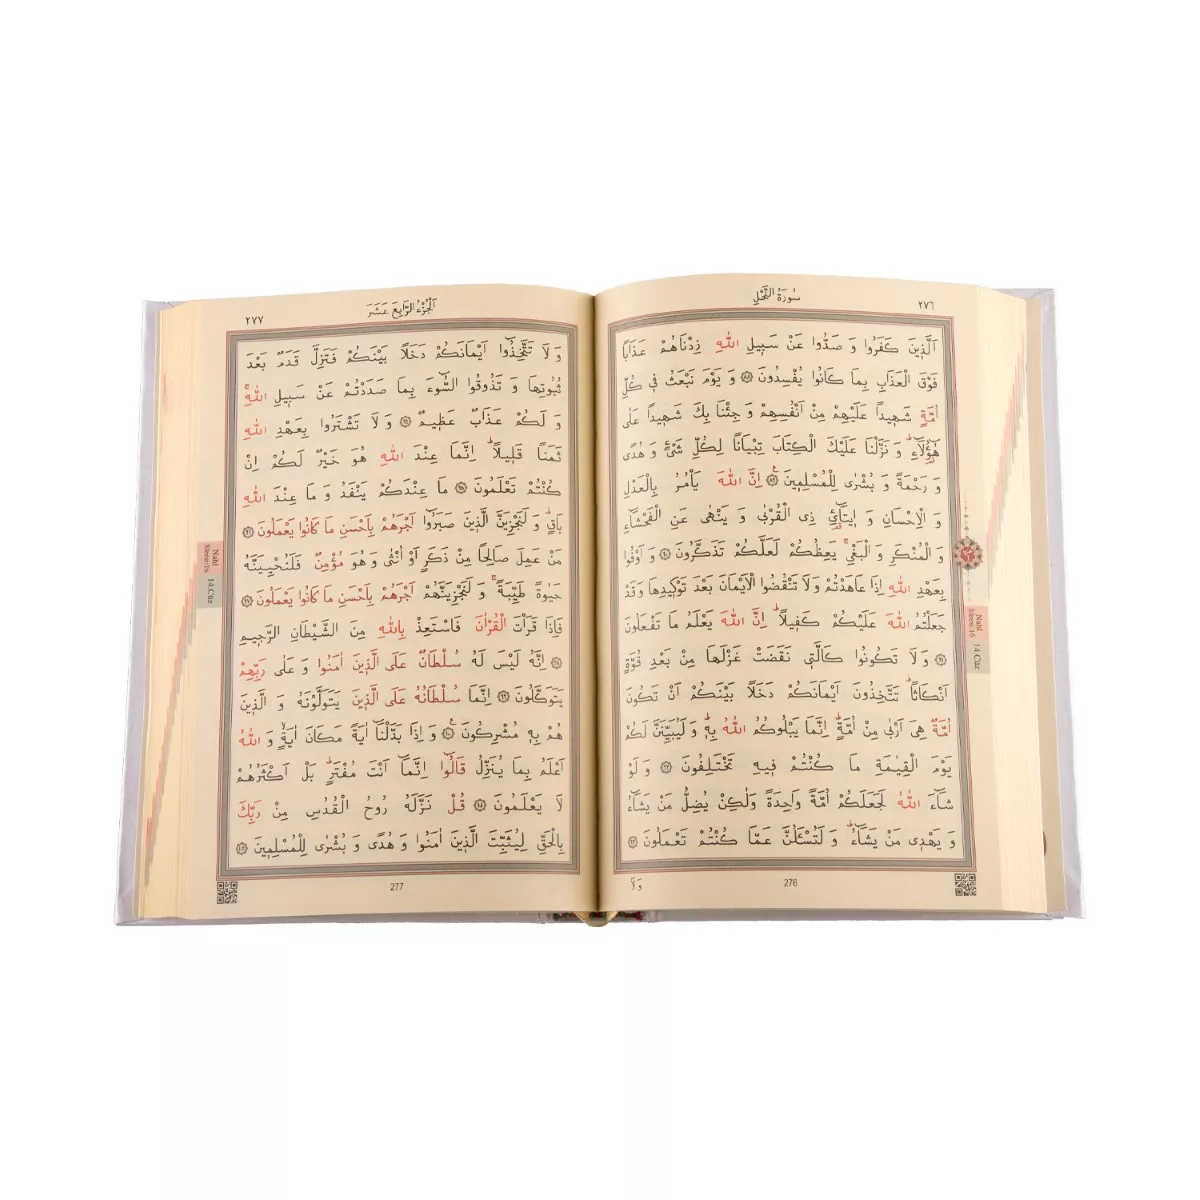 ٢٧٦
سُورَةُ النَّحْلِ
اَلَّذِينَ كَفَرُوا وَ صَدُّوا عَنْ سَبِيلِ اللّٰهِ زِدْنَاهُمْ عَذَابًا
فَوْقَ الْعَذَابِ بِمَا كَانُوا يُفْسِدُونَ ﴿٨٨﴾ وَ يَوْمَ نَبْعَثُ فِي كُلِّ
اُمَّةٍ شَهِيدًا عَلَيْهِمْ مِنْ اَنْفُسِهِمْ وَ جِئْنَا بِكَ شَهِيدًا عَلٰى
هٰٓؤُ۬لَٓاءِۜ وَ نَزَّلْنَا عَلَيْكَ الْكِتَابَ تِبْيَانًا لِكُلِّ شَيْءٍ وَ هُدًى
وَ رَحْمَةً وَ بُشْرٰى لِلْمُسْلِمِينَ۟ ﴿٨٩﴾ اِنَّ اللّٰهَ يَاْمُرُ بِالْعَدْلِ
وَ الْاِحْسَانِ وَ ا۪يتَٓائِ ذِي الْقُرْبٰى وَ يَنْهٰى عَنِ الْفَحْشَٓاءِ
وَ الْمُنْكَرِ وَ الْبَغْيِۚ يَعِظُكُمْ لَعَلَّكُمْ تَذَكَّرُونَ ﴿٩٠﴾ وَ اَوْفُوا
بِعَهْدِ اللّٰهِ اِذَا عَاهَدْتُمْ وَ لَا تَنْقُضُوا الْاَيْمَانَ بَعْدَ تَوْكِيدِهَا وَ قَدْ
جَعَلْتُمُ اللّٰهَ عَلَيْكُمْ كَفِيلًاۜ اِنَّ اللّٰهَ يَعْلَمُ مَا تَفْعَلُونَ
﴿٩١﴾ وَ لَا تَكُونُوا كَالَّتِي نَقَضَتْ غَزْلَهَا مِنْ بَعْدِ قُوَّةٍ
اَنْكَاثًاۜ تَتَّخِذُونَ اَيْمَانَكُمْ دَخَلًا بَيْنَكُمْ اَنْ تَكُونَ
اُمَّةٌ هِيَ اَرْبٰى مِنْ اُمَّةٍۜ اِنَّمَا يَبْلُوكُمُ اللّٰهُ بِهِۜ وَ لَيُبَيِّنَنَّ لَكُمْ
يَوْمَ الْقِيٰمَةِ مَا كُنْتُمْ فِيهِ تَخْتَلِفُونَ ﴿٩٢﴾ وَ لَوْ
شَٓاءَ اللّٰهُ لَجَعَلَكُمْ اُمَّةً وَاحِدَةً وَلٰكِنْ يُضِلُّ مَنْ يَشَٓاءُ
وَ يَهْدِي مَنْ يَشَٓاءُۜ وَ لَتُسْـَٔلُنَّ عَمَّا كُنْتُمْ تَعْمَلُونَ ﴿٩٣﴾
Nahl
Sûresi:16 14.Cüz
276
وَلَا
اَلْجُزْءُ الرَّابِعَ عَشَرَ
٢٧٧
وَ لَا تَتَّخِذُٓوا اَيْمَانَكُمْ دَخَلًا بَيْنَكُمْ فَتَزِلَّ قَدَمٌ بَعْدَ
ثُبُوتِهَا وَ تَذُوقُوا السُّٓوءَ بِمَا صَدَدْتُمْ عَنْ سَبِيلِ اللّٰهِۚ
وَ لَكُمْ عَذَابٌ عَظِيمٌ ﴿٩٤﴾ وَ لَا تَشْتَرُوا بِعَهْدِ اللّٰهِ
ثَمَنًا قَلِيلًاۜ اِنَّمَا عِنْدَ اللّٰهِ هُوَ خَيْرٌ لَكُمْ اِنْ
كُنْتُمْ تَعْلَمُونَ ﴿٩٥﴾ مَا عِنْدَكُمْ يَنْفَدُ وَ مَا عِنْدَ اللّٰهِ
بَاقٍۜ وَ لَنَجْزِيَنَّ الَّذِينَ صَبَرُٓوا اَجْرَهُمْ بِاَحْسَنِ مَا كَانُوا يَعْمَلُونَ ﴿٩٦﴾
مَنْ عَمِلَ صَالِحًا مِنْ ذَكَرٍ اَوْ اُنْثٰى وَ هُوَ مُؤْمِنٌ فَلَنُحْيِيَنَّهُ
حَيٰوةً طَيِّبَةًۚ وَ لَنَجْزِيَنَّهُمْ اَجْرَهُمْ بِاَحْسَنِ مَا كَانُوا يَعْمَلُونَ ﴿٩٧﴾
فَاِذَا قَرَاْتَ الْقُرْاٰنَ فَاسْتَعِذْ بِاللّٰهِ مِنَ الشَّيْطَانِ الرَّجِيمِ
﴿٩٨﴾ اِنَّهُ لَيْسَ لَهُ سُلْطَانٌ عَلَى الَّذِينَ اٰمَنُوا وَ عَلٰى رَبِّهِمْ
يَتَوَكَّلُونَ ﴿٩٩﴾ اِنَّمَا سُلْطَانُهُ عَلَى الَّذِينَ يَتَوَلَّوْنَهُ وَ الَّذِينَ
هُمْ بِهِ مُشْرِكُونَ۟ ﴿١٠٠﴾ وَ اِذَا بَدَّلْنَٓا اٰيَةً مَكَانَ اٰيَةٍۙ وَ اللّٰهُ
اَعْلَمُ بِمَا يُنَزِّلُ قَالُٓوا اِنَّمَٓا اَنْتَ مُفْتَرٍۜ بَلْ اَكْثَرُهُمْ
لَا يَعْلَمُونَ ﴿١٠١﴾ قُلْ نَزَّلَهُ رُوحُ الْقُدُسِ مِنْ رَبِّكَ
بِالْحَقِّ لِيُثَبِّتَ الَّذِينَ اٰمَنُوا وَ هُدًى وَ بُشْرٰى لِلْمُسْلِمِينَ ﴿١٠٢﴾
Nahl
Sûresi:16 14.Cüz
277